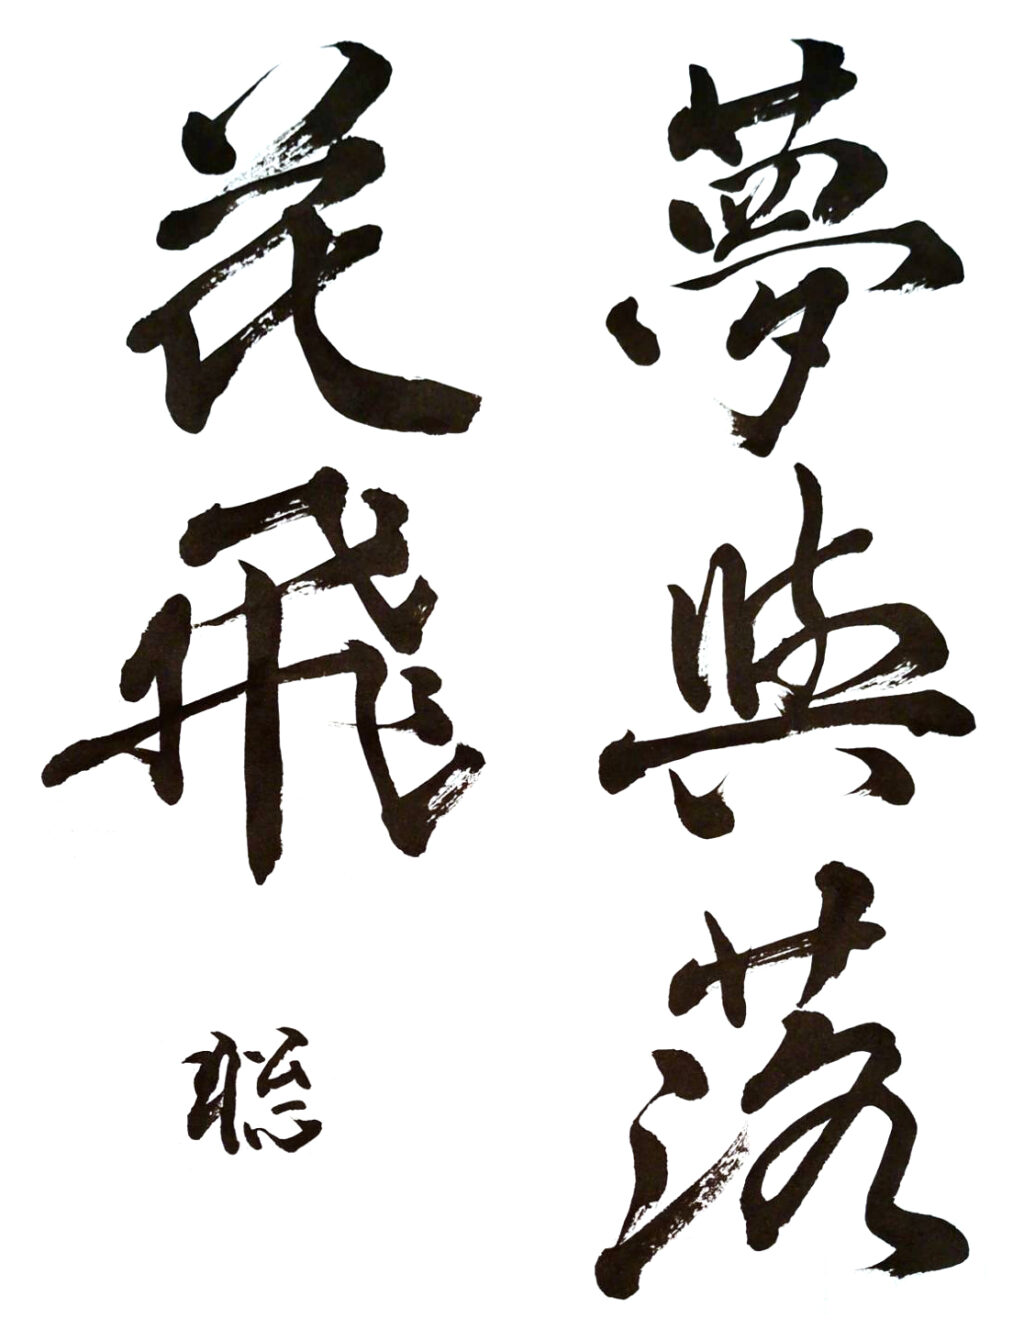 夢與落
花飛
聡